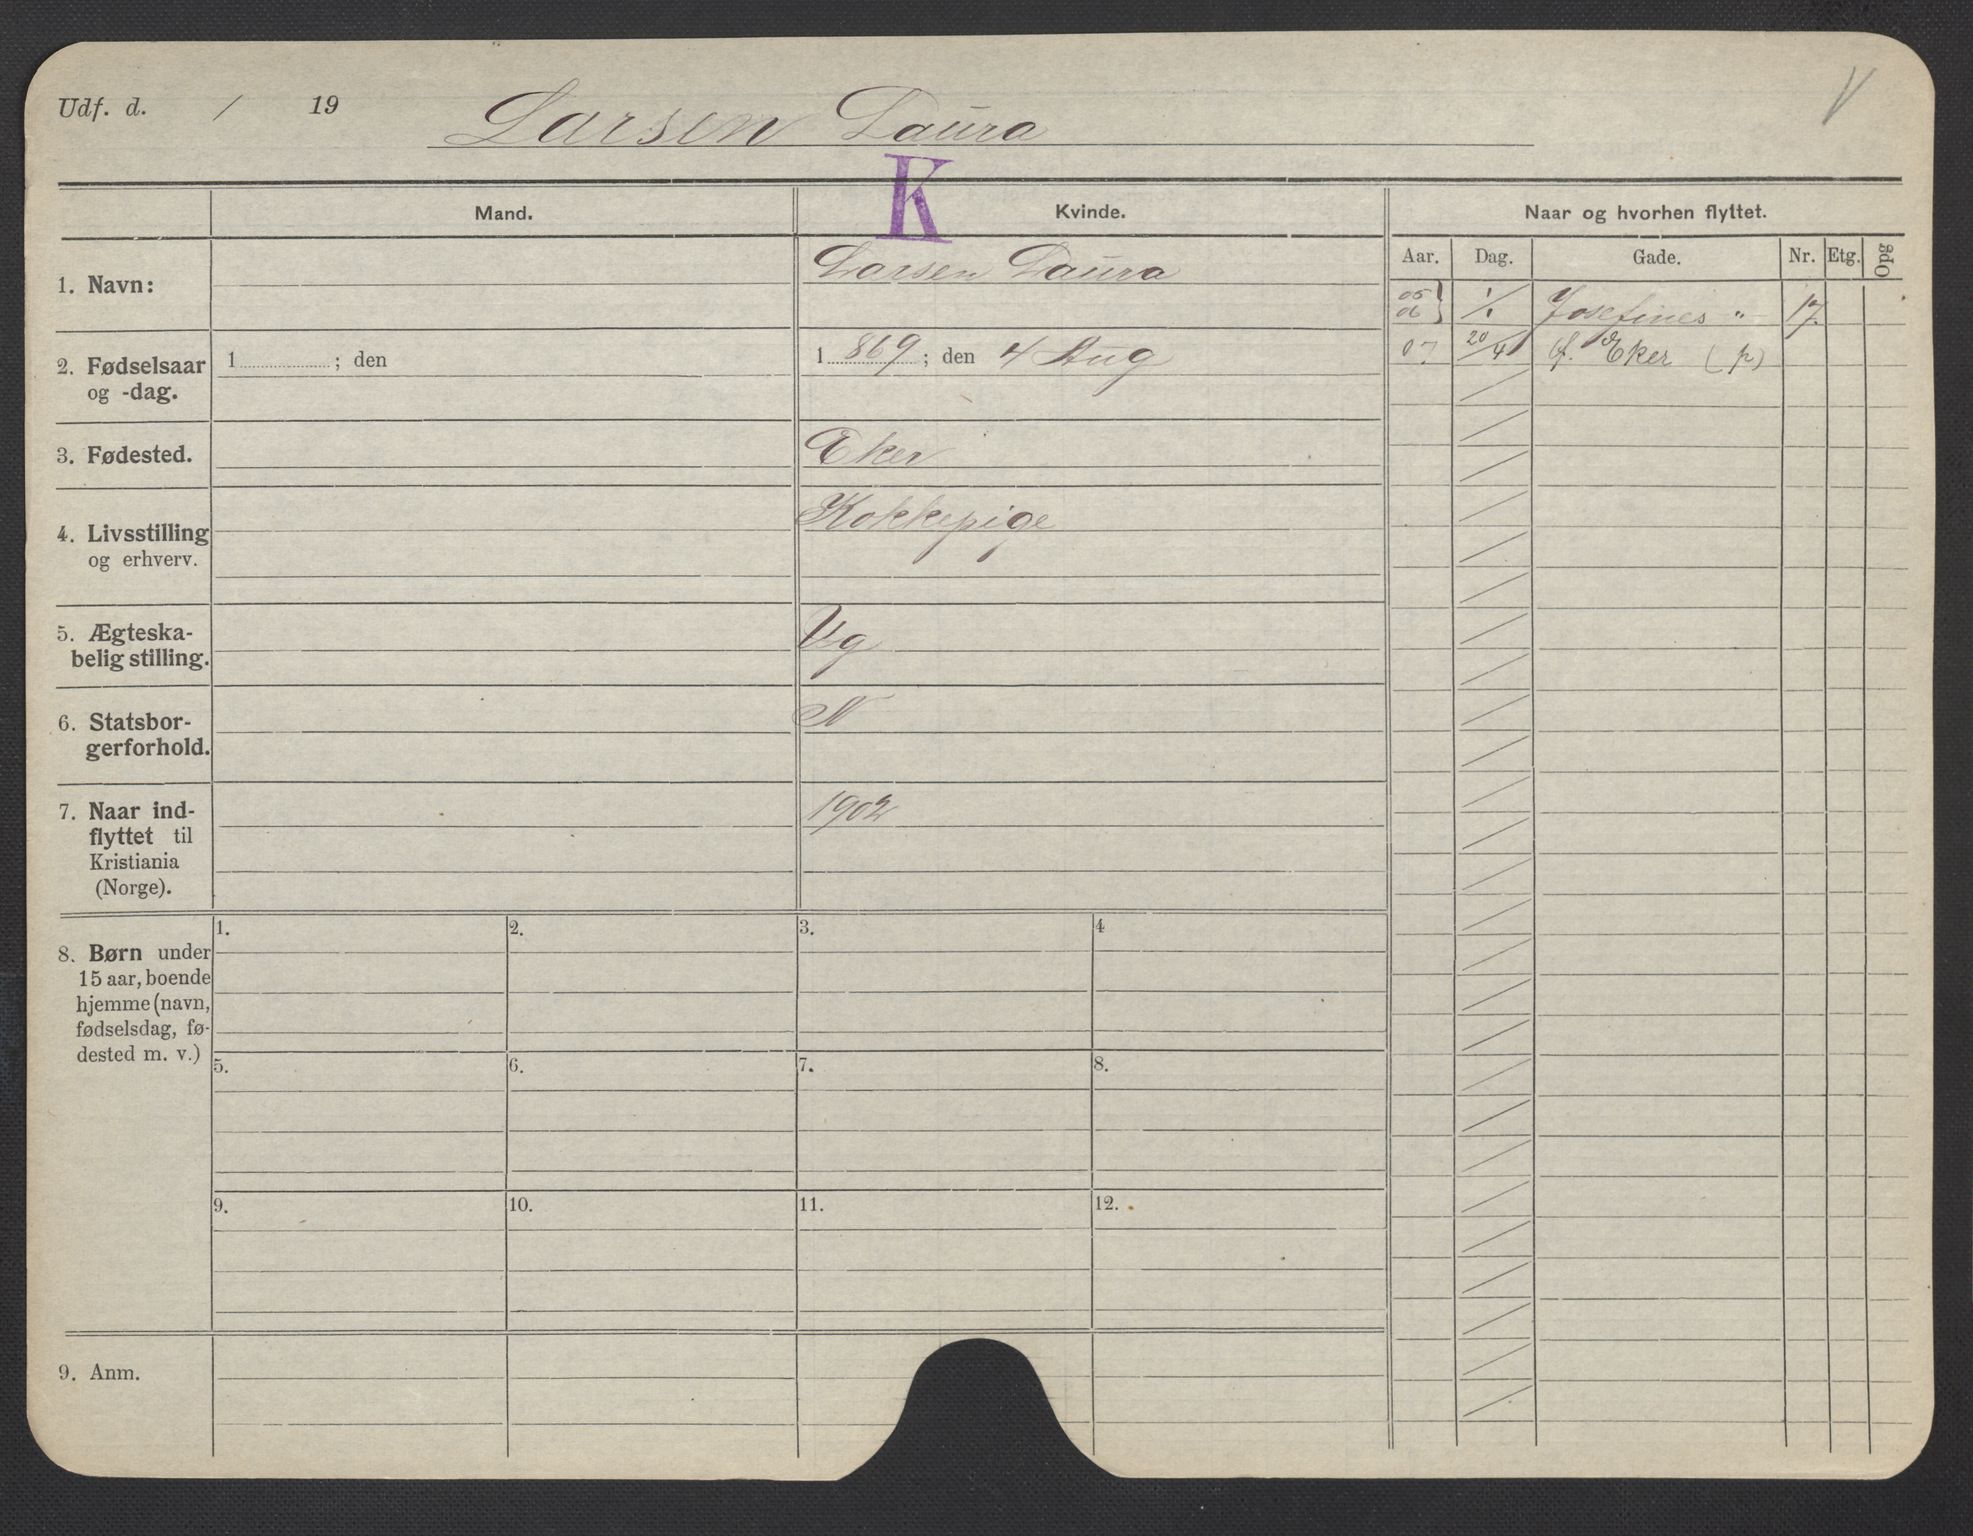 Udf. d. / 19 Larsen Laura
V
K
Mand. Kvinde. Naar og hvorhen flyttet.
Aar. Dag. Gade. Nr. Etg. Opg
1. Navn: Larsen Laura
05 06 } 1/1 Josefines " 17.
07 20/4 f. Eker (p)
2. Fødselsaar 1 ; den 1 869 ; den 4 Aug
og -dag.
3. Fødested. Eker
4. Livsstilling Kokkepige
og erhverv.
5. Ægteska- Ug
belig stilling.
6. Statsbor- N
gerforhold.
7. Naar ind- 1902
flyttet til
Kristiania
(Norge).
1. 2. 3. 4
8. Børn under
15 aar, boende
hjemme (navn,
fødselsdag, fø-
dested m. v.)
5. 6. 7. 8.
9. 10. 11. 12.
9. Anm.